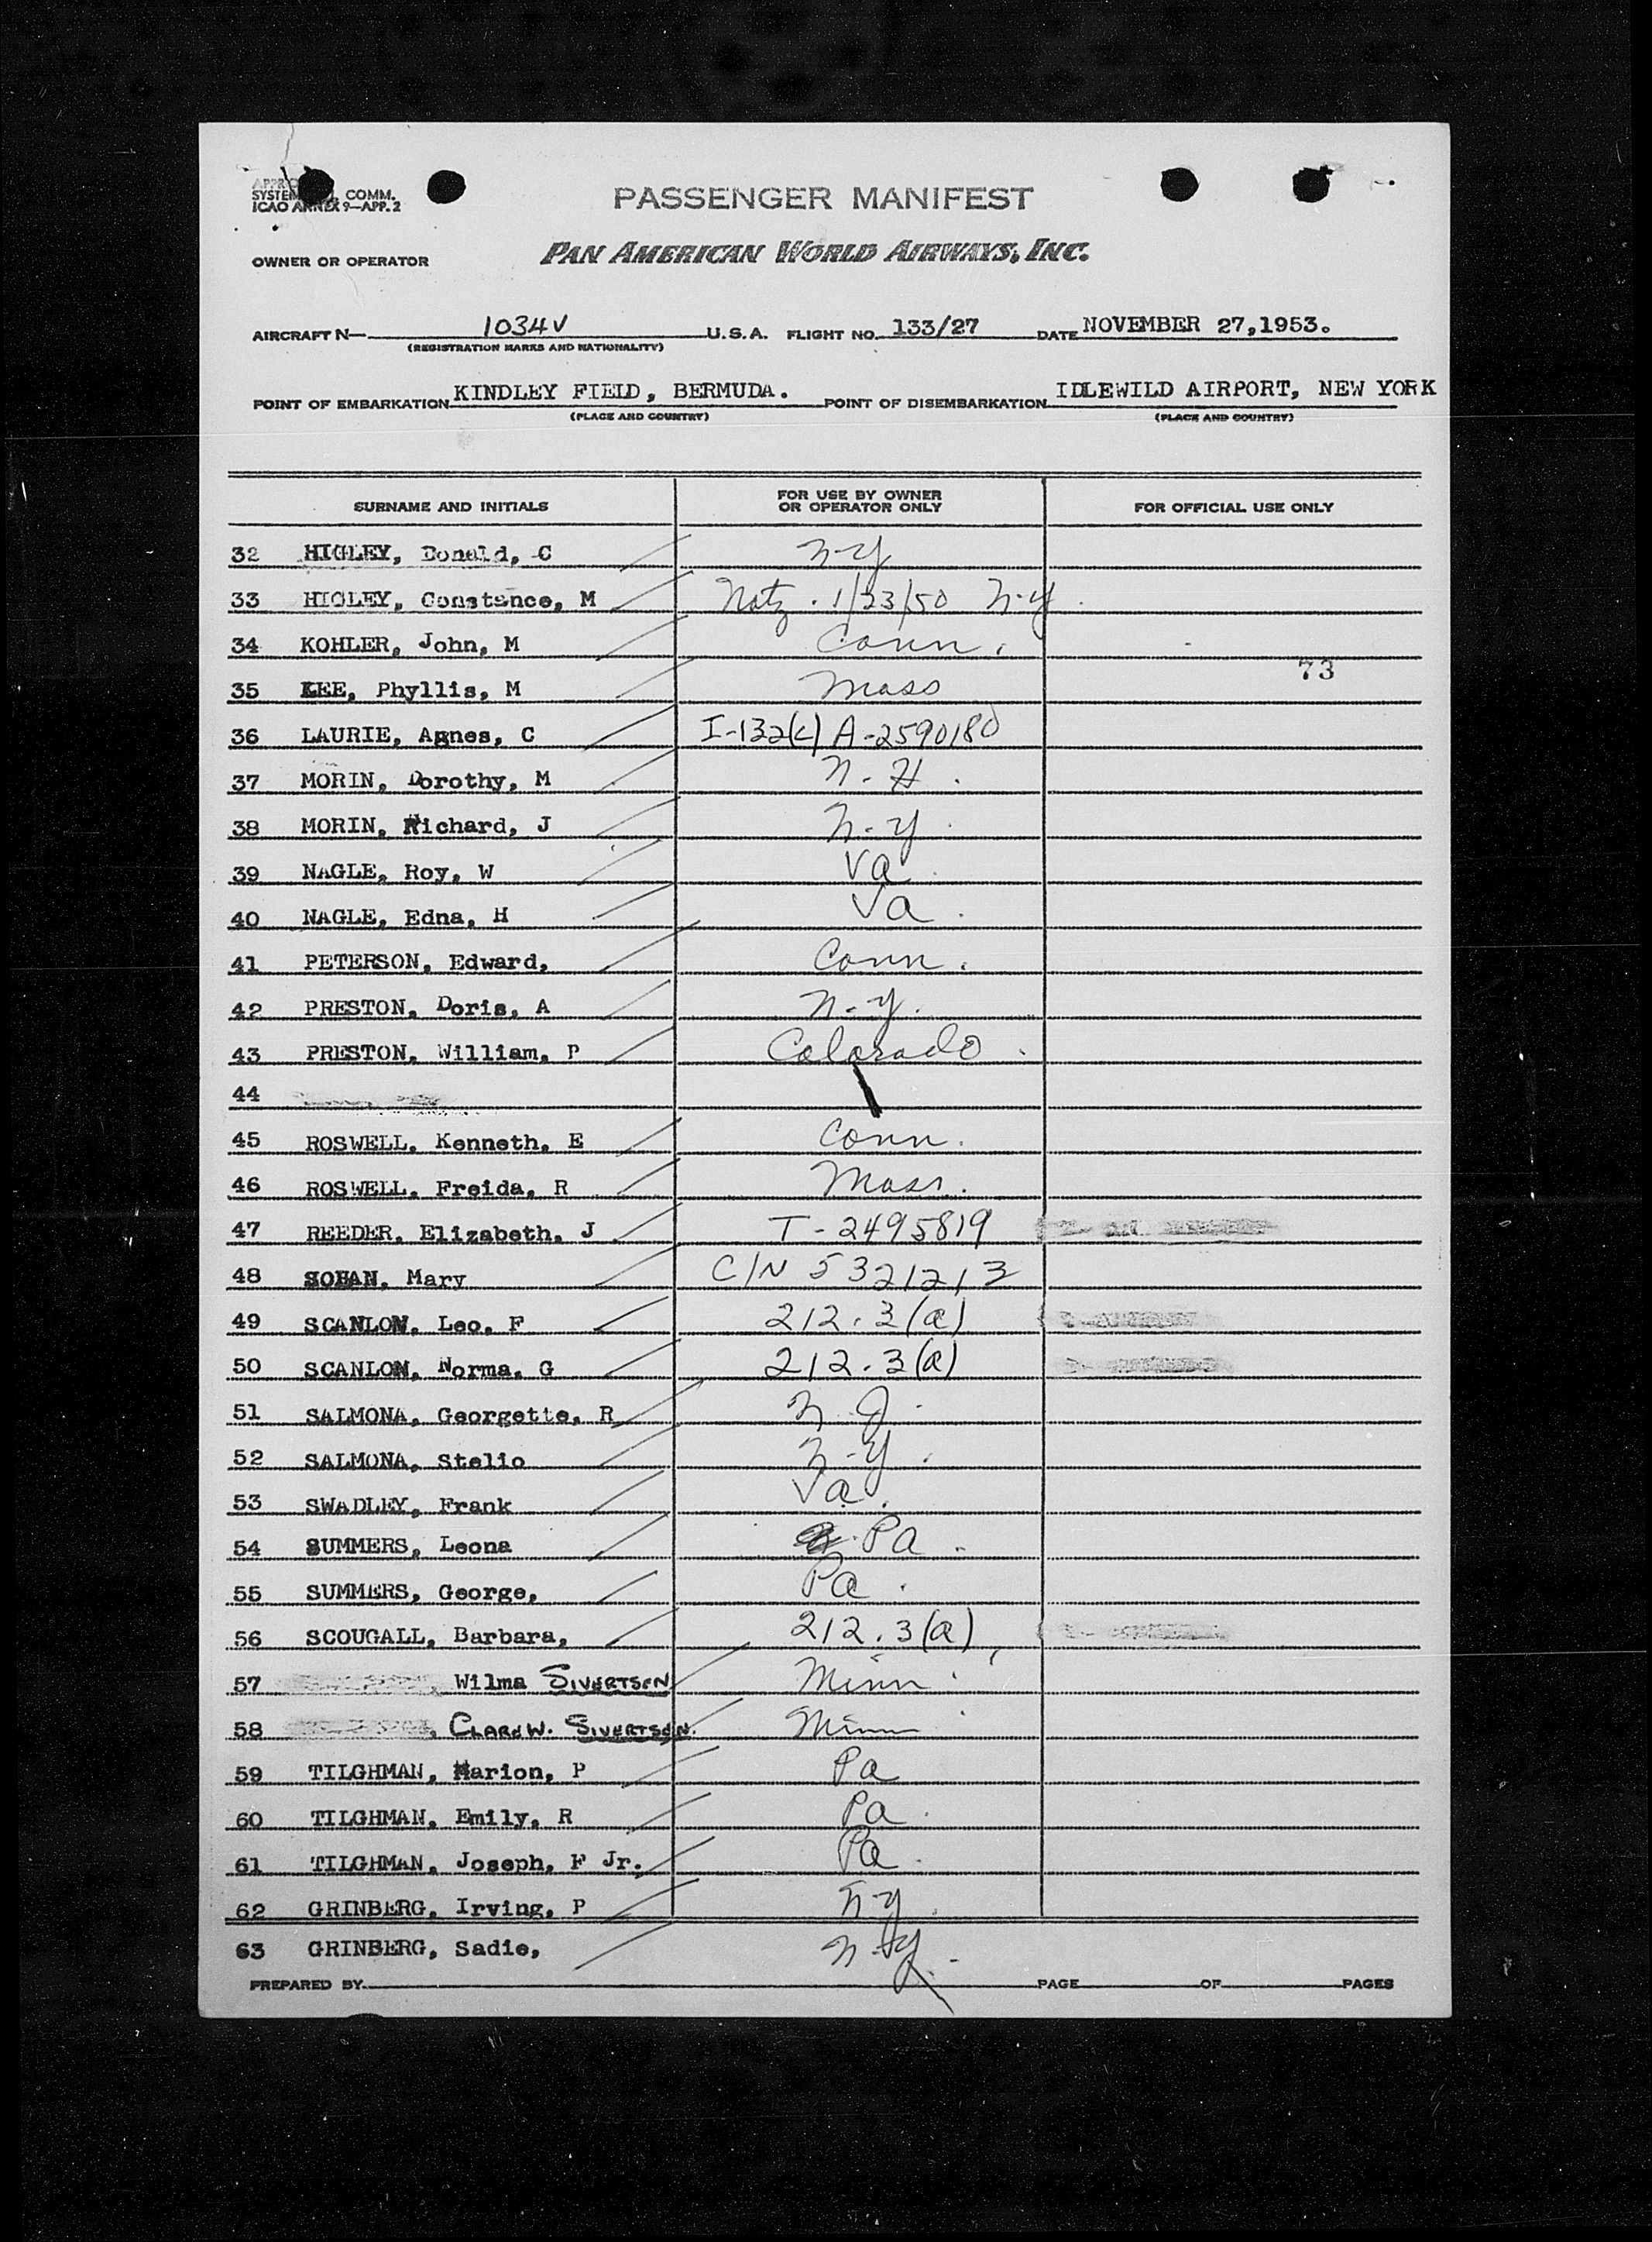 SYSTEM COMM.
ICAO ANNEX 9—APP. 2
PASSENGER MANIFEST
OWNER OR OPERATOR PAN AMERICAN WORLD AIRWAYS, INC.
AIRCRAFT N— 1034V U.S.A. FLIGHT NO. 133/27 DATE NOVEMBER 27,1953.
(REGISTRATION MARKS AND NATIONALITY)
POINT OF EMBARKATION KINDLEY FIELD, BERMUDA. POINT OF DISEMBARKATION IDLEWILD AIRPORT, NEW YORK
(PLACE AND COUNTRY) (PLACE AND COUNTRY)
SURNAME AND INITIALS FOR USE BY OWNER OR OPERATOR ONLY FOR OFFICIAL USE ONLY
32 HIGLEY, Donald, C N-Y
33 HIGLEY, Constance, M Natz. 1/23/50 N-Y.
34 KOHLER, John, M Conn.
73
35 LEE, Phyllis, M Mass
36 LAURIE, Agnes, C I-132(c) A-2590180
37 MORIN, Dorothy, M N-H.
38 MORIN, Richard, J N-Y.
39 NAGLE, Roy, W Va.
40 NAGLE, Edna, H Va.
41 PETERSON, Edward, Conn.
42 PRESTON, Doris, A N-Y.
43 PRESTON, William, P Colorado.
44
45 ROSWELL, Kenneth, E Conn.
46 ROSWELL, Freida, R Mass.
47 REEDER, Elizabeth, J T-2495819
48 Mary C/N 5321213
49 SCANLON, Leo, F 212.3(a)
50 SCANLON, Norma, G 212.3(a)
51 SALMONA, Georgette, R N J.
52 SALMONA, Stelio N-Y.
53 SWADLEY, Frank Va.
54 SUMMERS, Leona Pa.
55 SUMMERS, George, Pa.
56 SCOUGALL, Barbara, 212.3(a)
57 , Wilma SIVERTSEN Minn.
58 , CLARE W. SIVERTSEN. Minn
59 TILGHMAN, Marion, P Pa
60 TILGHMAN, Emily, R Pa.
61 TILGHMAN, Joseph, F Jr. Pa.
62 GRINBERG, Irving, P N-Y.
63 GRINBERG, Sadie, N-Y.
PREPARED BY PAGE OF PAGES